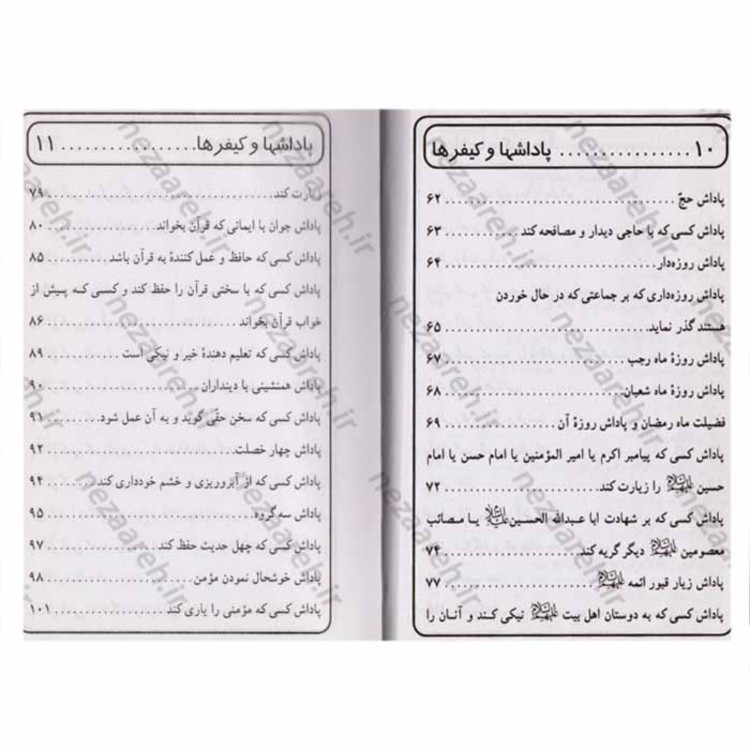 ۱۰ ................ پاداشها و کیفرها
پاداش حجّ ................ ۶۲
پاداش کسی که با حاجی دیدار و مصافحه کند ............ ۶۳
پاداش روزه‌دار ................ ۶۴
پاداش روزه‌داری که بر جماعتی که در حال خوردن
هستند گذر نماید ................ ۶۵
پاداش روزهٔ ماه رجب ................ ۶۷
پاداش روزهٔ ماه شعبان ................ ۶۸
فضیلت ماه رمضان و پاداش روزهٔ آن ................ ۶۹
پاداش کسی که پیامبر اکرم یا امیر المؤمنین یا امام حسن یا امام
حسین علیهم‌السلام را زیارت کند ................ ۷۲
پاداش کسی که بر شهادت ابا عبدالله الحسین علیه‌السلام یا مصائب
معصومین علیهم‌السلام دیگر گریه کند ................ ۷۴
پاداش زیار قبور ائمه علیهم‌السلام ................ ۷۷
پاداش کسی که به دوستان اهل بیت علیهم‌السلام نیکی کند و آنان را
پاداشها و کیفرها ................ ۱۱
زیارت کند ................ ۷۹
پاداش جوان با ایمانی که قرآن بخواند ................ ۸۰
پاداش کسی که حافظ و عمل کنندهٔ به قرآن باشد ............ ۸۵
پاداش کسی که با سختی قرآن را حفظ کند و کسی که پیش از
خواب قرآن بخواند ................ ۸۶
پاداش کسی که تعلیم دهندهٔ خیر و نیکی است ............ ۸۹
پاداش همنشینی با دینداران ................ ۹۰
پاداش کسی که سخن حقّی گوید و به آن عمل شود ........ ۹۱
پاداش چهار خصلت ................ ۹۲
پاداش کسی که از آبروریزی و خشم خودداری کند ........ ۹۴
پاداش سه گروه ................ ۹۵
پاداش کسی که چهل حدیث حفظ کند ................ ۹۷
پاداش خوشحال نمودن مؤمن ................ ۹۸
پاداش کسی که مؤمنی را یاری کند ................ ۱۰۱
nezaareh.ir